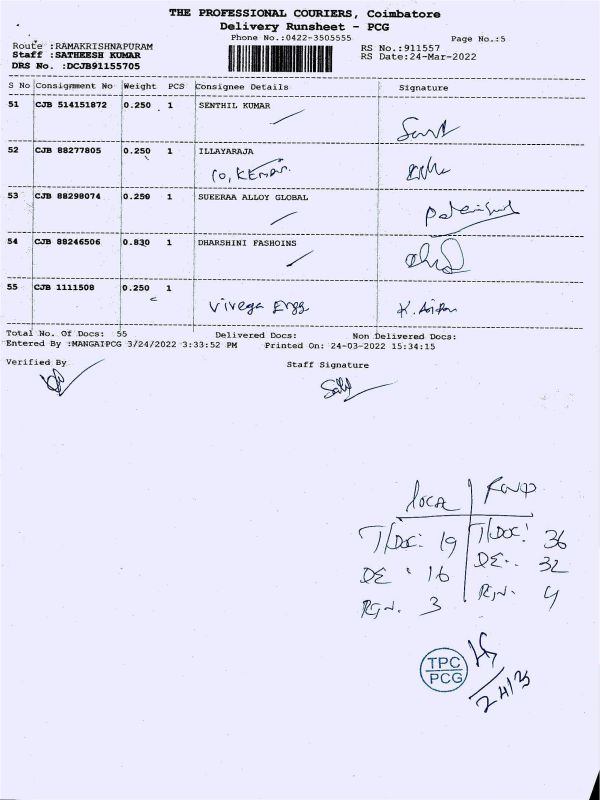 THE PROFESSIONAL COURIERS, Coimbatore
Delivery Runsheet - PCG
Phone No.:0422-3505555 Page No.:5
Route :RAMAKRISHNAPURAM RS No.:911557
Staff :SATHEESH KUMAR RS Date:24-Mar-2022
DRS No. :DCJB91155705
S No Consignment No Weight PCS Consignee Details Signature
51 CJB 514151872 0.250 1 SENTHIL KUMAR
52 CJB 88277805 0.250 1 ILLAYARAJA
53 CJB 88298074 0.250 1 SUEERAA ALLOY GLOBAL
54 CJB 88246506 0.830 1 DHARSHINI FASHOINS
55 CJB 1111508 0.250 1
Vivega Engg
Total No. Of Docs: 55 Delivered Docs: Non Delivered Docs:
Entered By :MANGAIPCG 3/24/2022 3:33:52 PM Printed On: 24-03-2022 15:34:15
Verified By Staff Signature
local
T/Doc: 19 T/Doc: 36
DE: 16 DE: 32
RJN. 3 RJN. 4
TPC
PCG
24/3